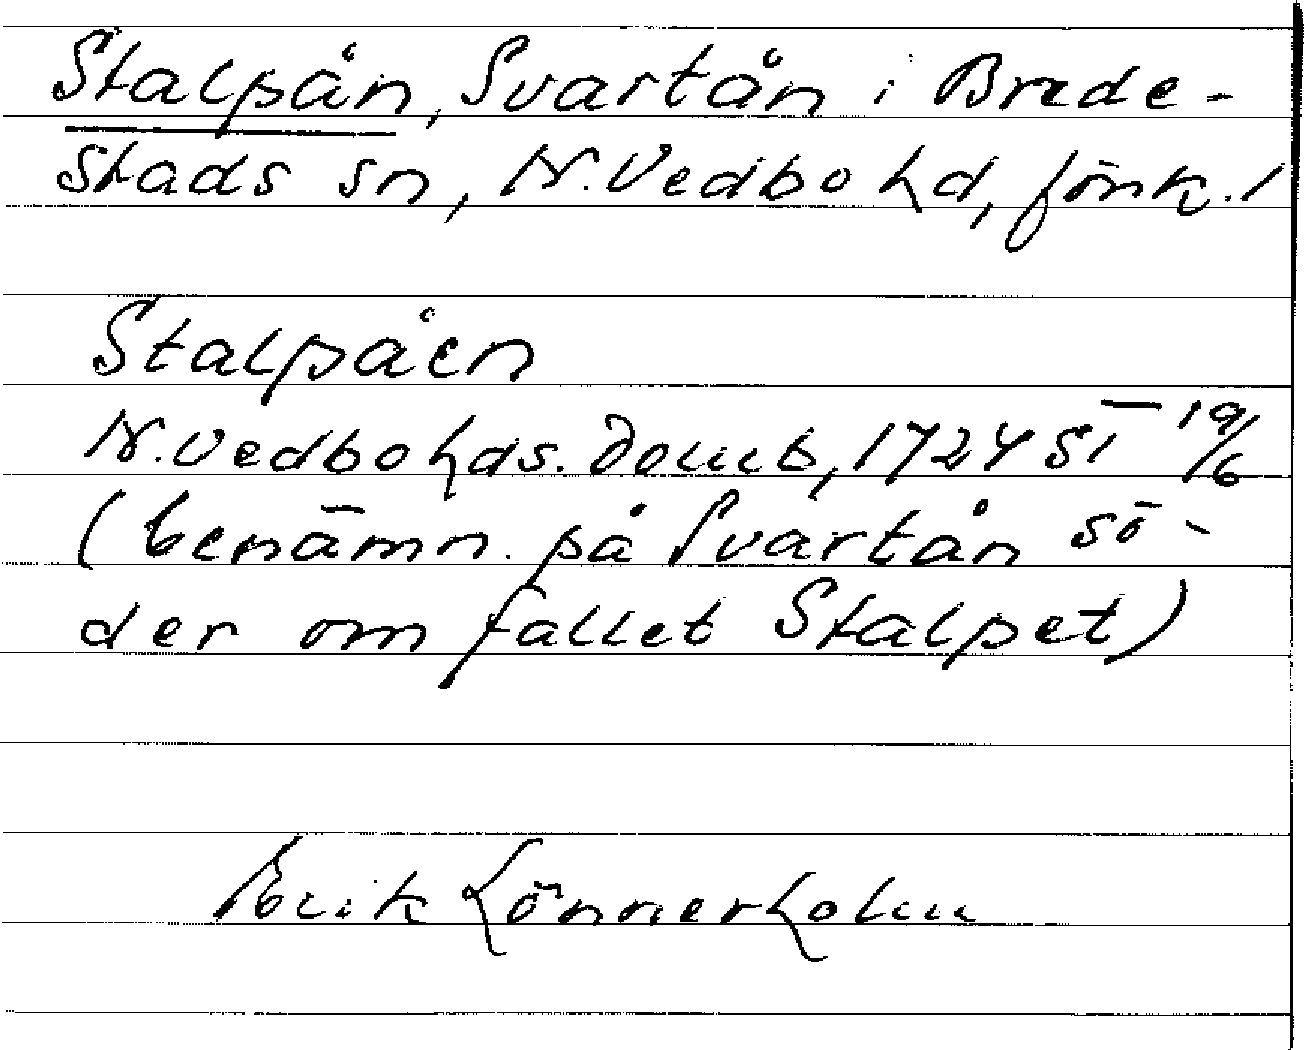 Stalpån, Svartån i Brede-
stads sn, N. Vedbo hd, Jönk. l
Stalpåen
N. Vedbo hds. domb, 1724 ST 19/6
(benämn. på Svartån sö-
der om fallet Stalpet)
Erik Lönnerholm